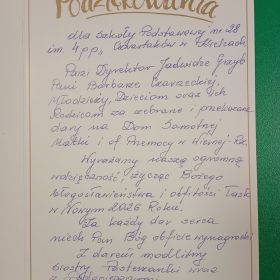 Podziękowania
dla Szkoły Podstawowej nr 28
im. 4 pp „Czwartaków" w Kielcach
Pani Dyrektor Jadwidze Grzyb
Pani Barbarze Czarneckiej
Młodzieży, Dzieciom oraz ich
Rodzicom za zebrane i przekazane
dary na Dom Samotnej
Matki i of Przemocy w Wiernej Rz.
Wyrażamy naszą ogromną
wdzięczność, życząc Bożego
błogosławieństwa i obfitości Łask
w Nowym 2026 Roku.
Za każdy dar serca
niech Pan Bóg obficie wynagrodzi
Z darem modlitwy
siostry, Pastemanki wraz